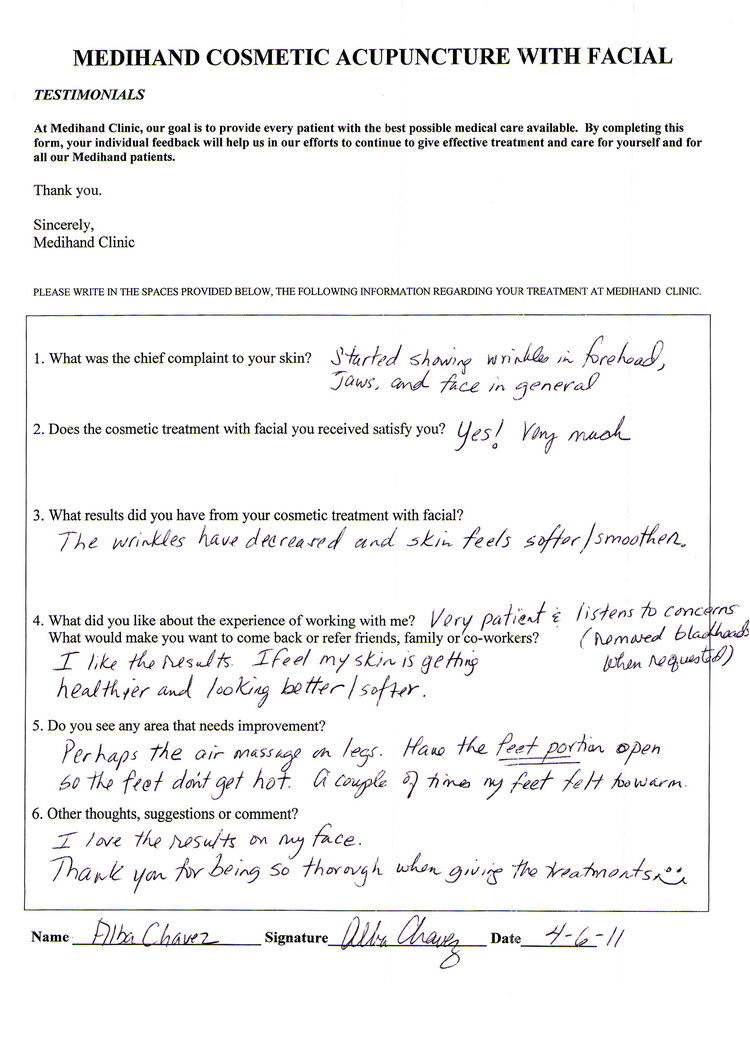 MEDIHAND COSMETIC ACUPUNCTURE WITH FACIAL
TESTIMONIALS
At Medihand Clinic, our goal is to provide every patient with the best possible medical care available. By completing this
form, your individual feedback will help us in our efforts to continue to give effective treatment and care for yourself and for
all our Medihand patients.
Thank you.
Sincerely,
Medihand Clinic
PLEASE WRITE IN THE SPACES PROVIDED BELOW, THE FOLLOWING INFORMATION REGARDING YOUR TREATMENT AT MEDIHAND CLINIC.
1. What was the chief complaint to your skin? Started showing wrinkles in forehead,
Jaws, and face in general
2. Does the cosmetic treatment with facial you received satisfy you? Yes! Very much
3. What results did you have from your cosmetic treatment with facial?
The wrinkles have decreased and skin feels softer/smoother.
4. What did you like about the experience of working with me? Very patient & listens to concerns
What would make you want to come back or refer friends, family or co-workers? (removed blackheads
I like the results. I feel my skin is getting when requested)
healthier and looking better/softer.
5. Do you see any area that needs improvement?
Perhaps the air massage on legs. Have the feet portion open
so the feet don't get hot. A couple of times my feet felt too warm.
6. Other thoughts, suggestions or comment?
I love the results on my face.
Thank you for being so thorough when giving the treatments
Name Alba Chavez Signature Alba Chavez Date 4-6-11